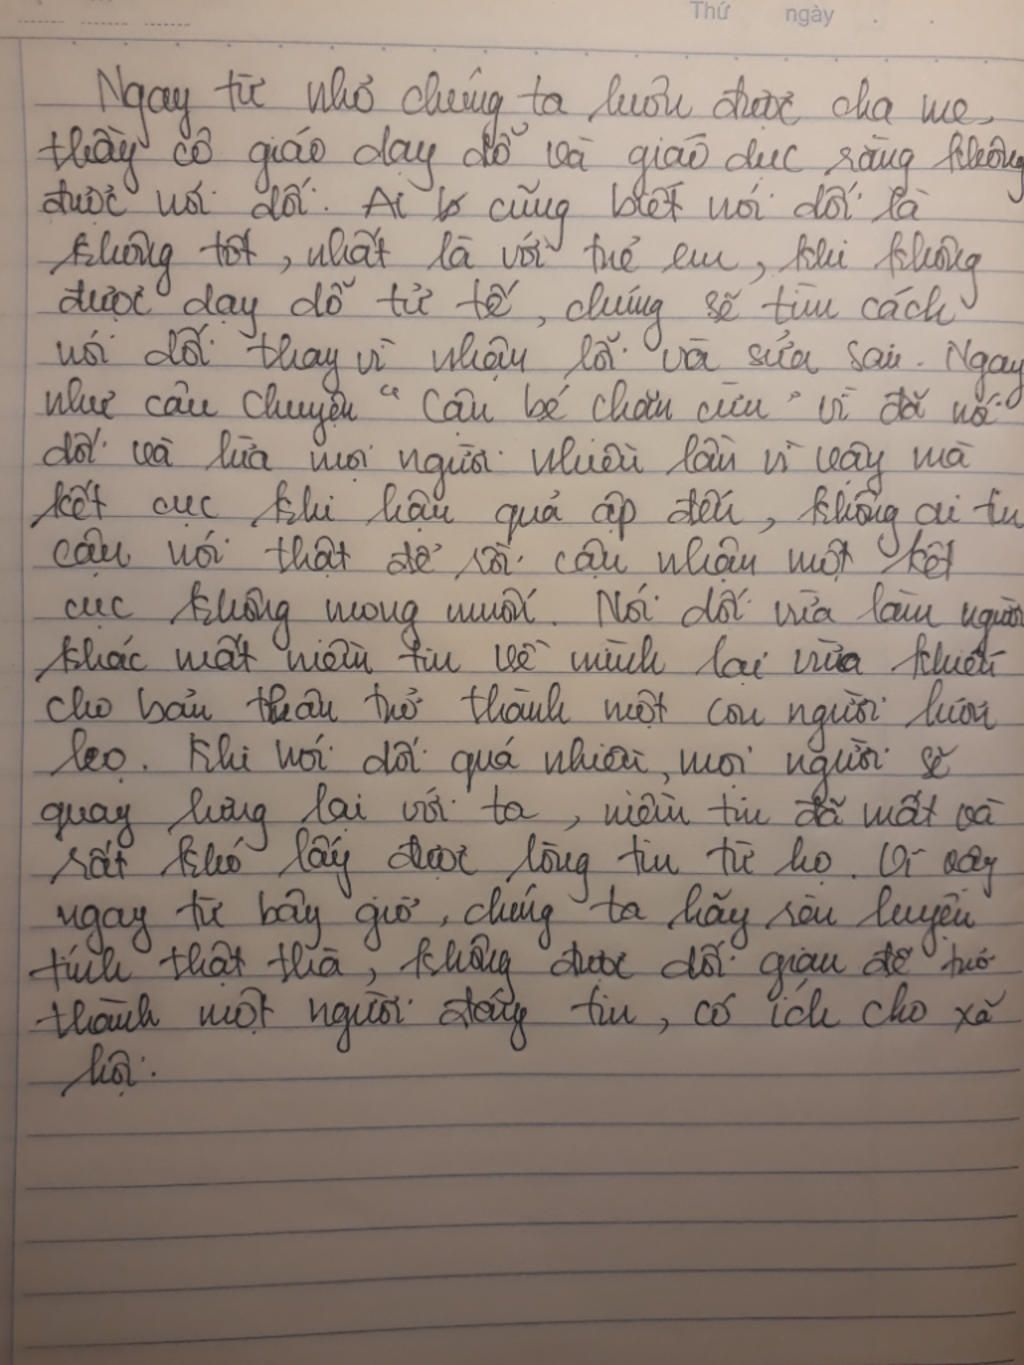 Thứ ngày
Ngay từ nhỏ chúng ta luôn được cha mẹ,
thầy cô giáo dạy dỗ và giáo dục rằng không
được nói dối. Ai cũng biết nói dối là
không tốt, nhất là với trẻ em, khi không
được dạy dỗ tử tế, chúng sẽ tìm cách
nói dối thay vì nhận lỗi và sửa sai. Ngay
như câu chuyện "Cậu bé chăn cừu" vì đã nói
dối và lừa mọi người nhiều lần vì vậy mà
kết cục khi hậu quả ập đến, không ai tin
cậu nói thật để rồi cậu nhận một kết
cục không mong muốn. Nói dối vừa làm người
khác mất niềm tin về mình lại vừa khiến
cho bản thân trở thành một con người lươn
lẹo. Khi nói dối quá nhiều, mọi người sẽ
quay lưng lại với ta, niềm tin đã mất và
rất khó lấy được lòng tin từ họ. Vì vậy
ngay từ bây giờ, chúng ta hãy rèn luyện
tính thật thà, không được dối gian để trở
thành một người đáng tin, có ích cho xã
hội.